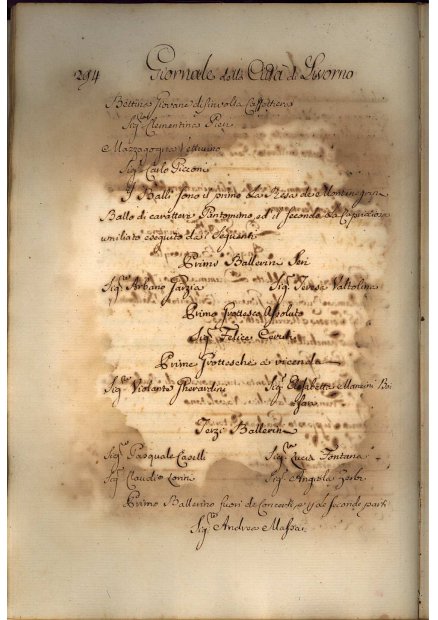 294 Giornale della Città di Livorno
Bettina Giovane disinvolta Caffettiera
Sig.ra Clementina Pieri
Mazzagogna Vetturino
Sig.r Carlo Picconi
I Balli sono il primo La Presa de Montenegrini
Ballo di carattere Pantomimo, ed il secondo La Capricciosa
umiliata eseguito da i Seguenti
Primi Ballerini Seri
Sig.r Urbano Garzia Sig.ra Teresa Valtolina
Primo Grottesco Assoluto
Sig.r Felice Ceruti
Prime Grottesche a vicenda
Sig.ra Violante Gherardini Sig.ra Elisabetta Mancini
Terzi Ballerini
Sig.r Pasquale Caselli Sig.ra Lucia Fontana
Sig.r Claudio Sig.ra Angiola
Primo Ballerino fuori de Concerti, e p. le seconde parti
Sig.r Andrea Massai